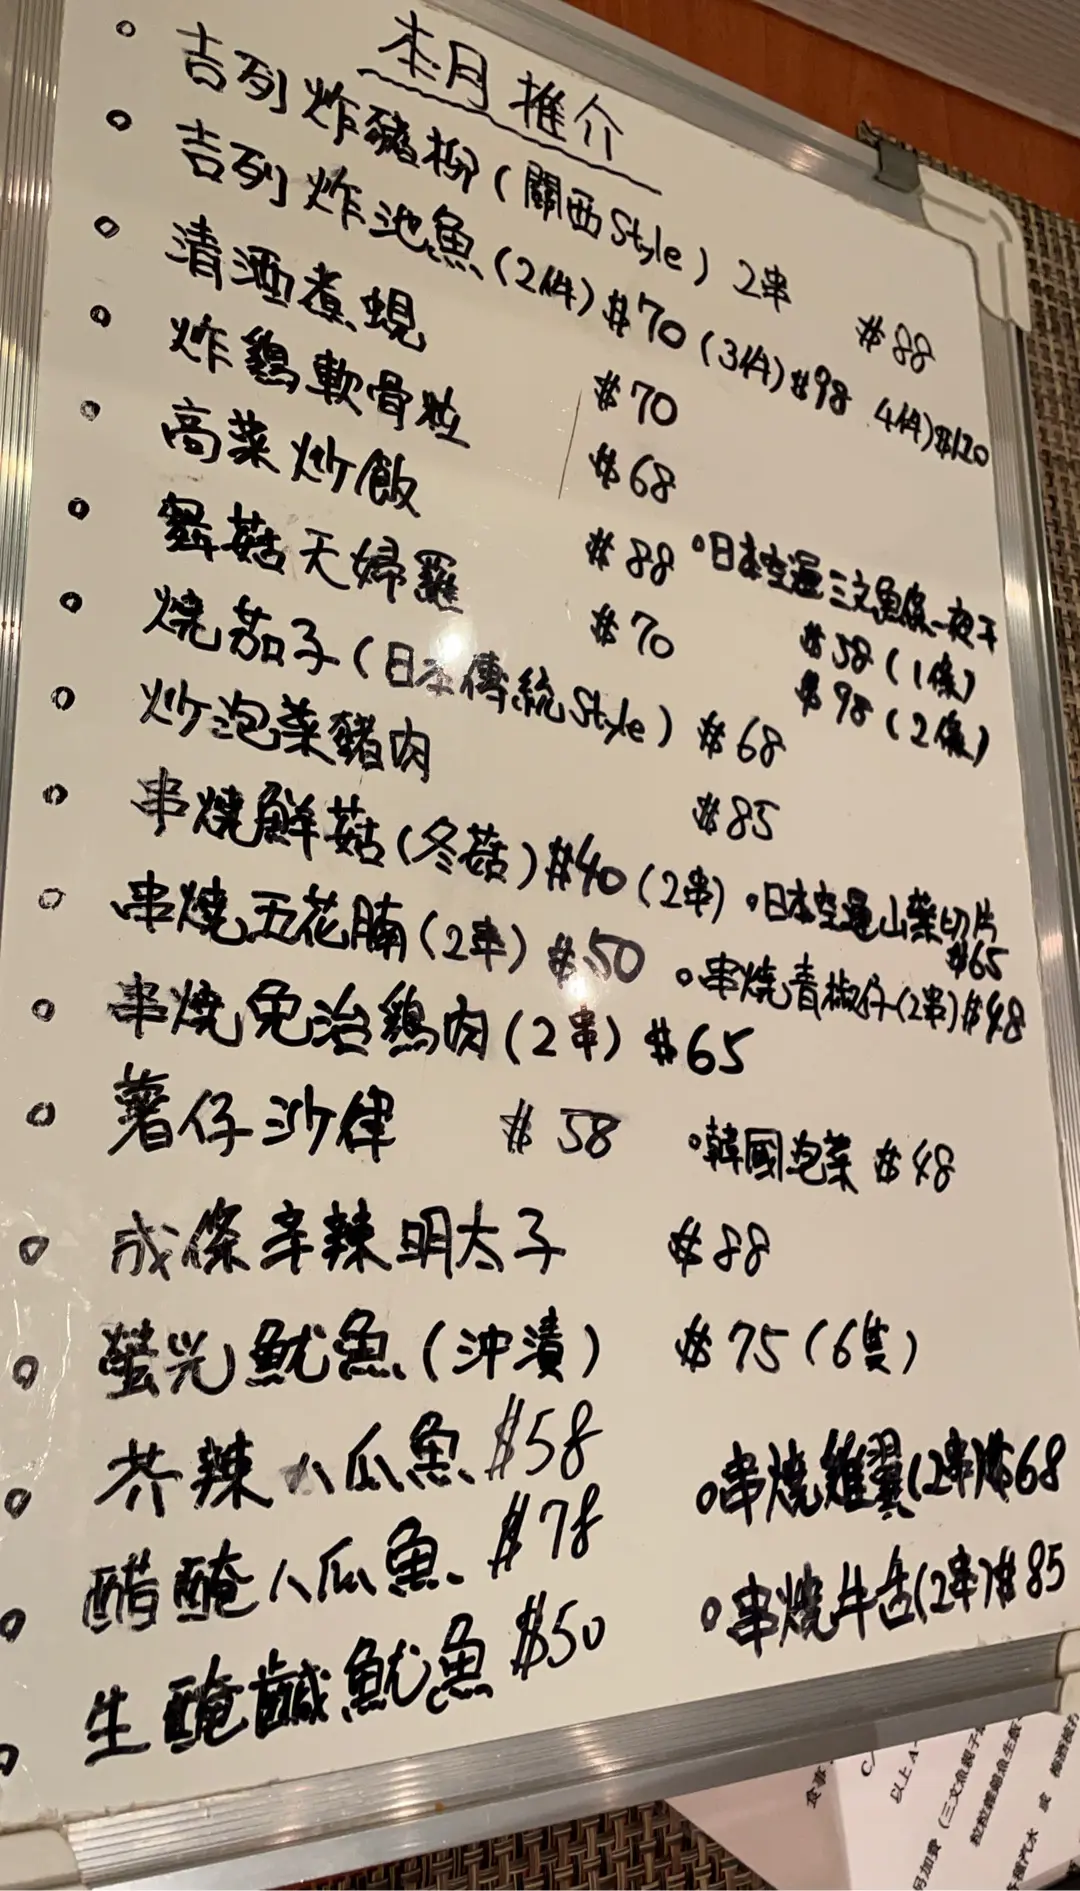 本月推介
吉列炸豬柳(關西Style) 2串 $88
吉列炸池魚(2件)$70(3件)$98 4件)$120
清酒煮蜆 $70
炸鷄軟骨粒 $68
高菜炒飯 $88
舞菇天婦羅 $70
日本空運三文魚條一夜干
$58(1條)
$98(2條)
燒茄子(日本傳統Style) $68
炒泡菜豬肉 $85
串燒鮮菇(冬菇)$40(2串)
日本空運山葵切片
$65
串燒五花腩(2串) $50
串燒青椒仔(2串)$48
串燒免治鷄肉(2串) $65
薯仔沙律 $58
韓國泡菜 $48
成條辛辣明太子 $88
螢光魷魚(沖漬) $75(6隻)
芥辣八爪魚 $58
串燒雞翼(2串)$68
醋醃八爪魚 $78
串燒牛舌(2串)$85
生醃鹹魷魚 $50
食事
以上
另加費(三文魚親子